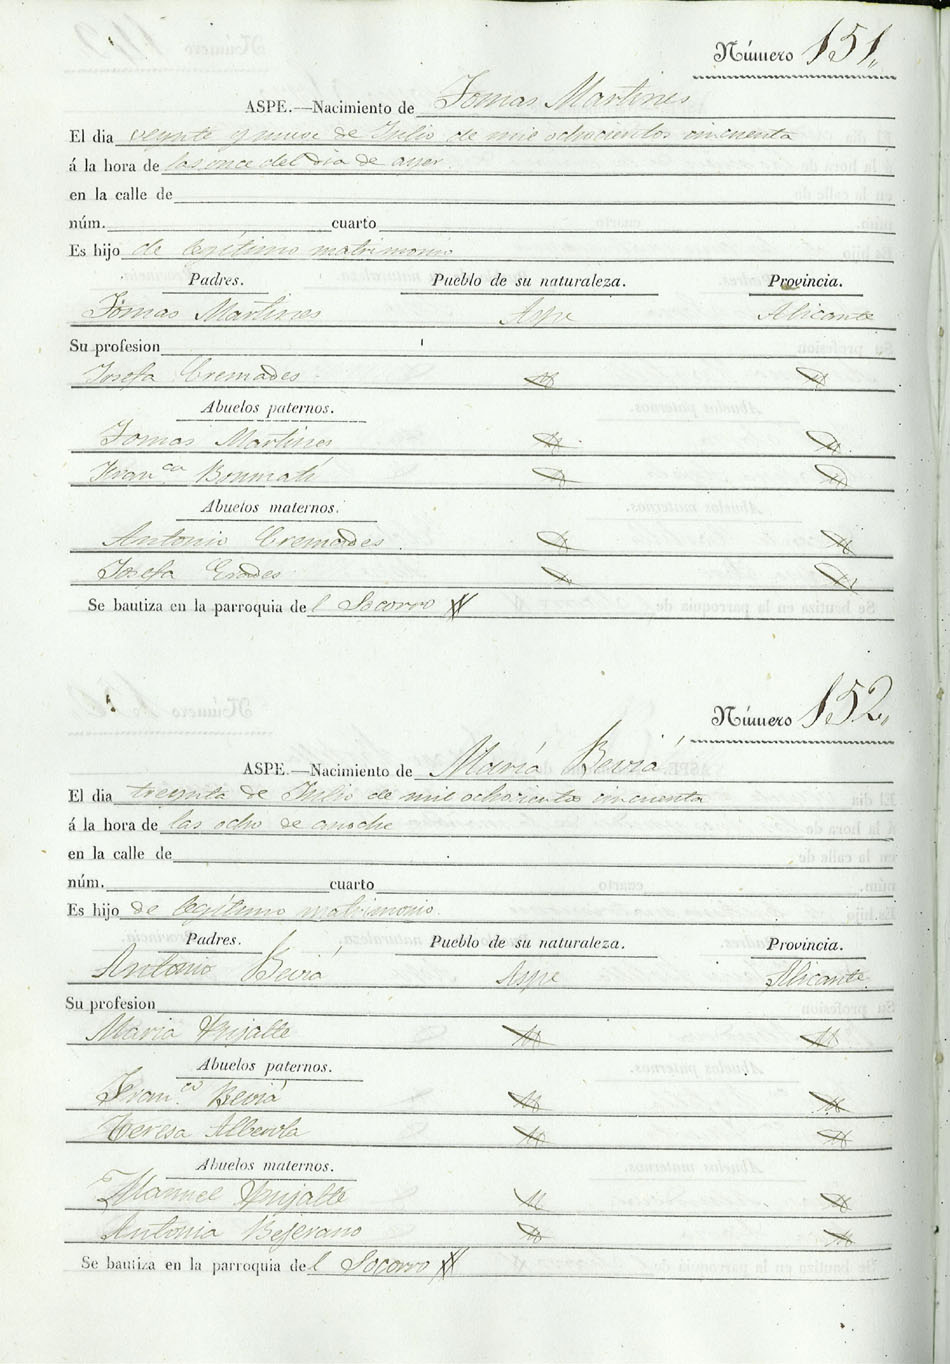 Número 151.
ASPE.—Nacimiento de Tomas Martines
El dia veynte y nueve de Julio de mil ochocientos cincuenta
á la hora de las once del dia de ayer.
en la calle de
núm. cuarto
Es hijo de legitimo matrimonio
Padres. Pueblo de su naturaleza. Provincia.
Tomas Martines Aspe Alicante
Su profesion
Josefa Cremades
Abuelos paternos.
Tomas Martines
Fran.ca Boumati
Abuelos maternos.
Antonio Cremades
Josefa Erades
Se bautiza en la parroquia del Socorro
Número 152.
ASPE.—Nacimiento de María Beviá
El dia treynta de Julio de mil ochocientos cincuenta
á la hora de las ocho de anoche
en la calle de
núm. cuarto
Es hijo de legitimo matrimonio.
Padres. Pueblo de su naturaleza. Provincia.
Antonio Beviá Aspe Alicante
Su profesion
Maria
Abuelos paternos.
Fran.co Beviá
Teresa Alberola
Abuelos maternos.
Manuel
Antonia Bejerano
Se bautiza en la parroquia del Socorro